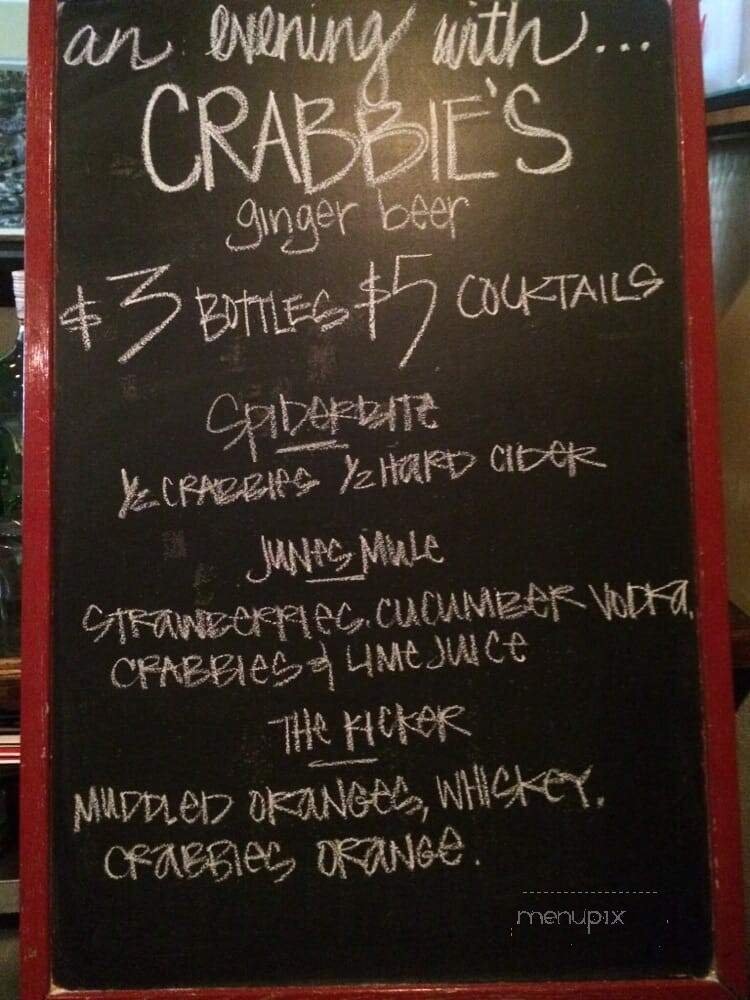 an evening with...
CRABBIE'S
ginger beer
$3 BOTTLES $5 COCKTAILS
SPIDERBITE
1/2 CRABBIES 1/2 HARD CIDER
JUNES MULE
STRAWBERRIES, CUCUMBER VODKA,
CRABBIES & LIME JUICE
THE KICKER
MUDDLED ORANGES, WHISKEY,
CRABBIES ORANGE.
menupix